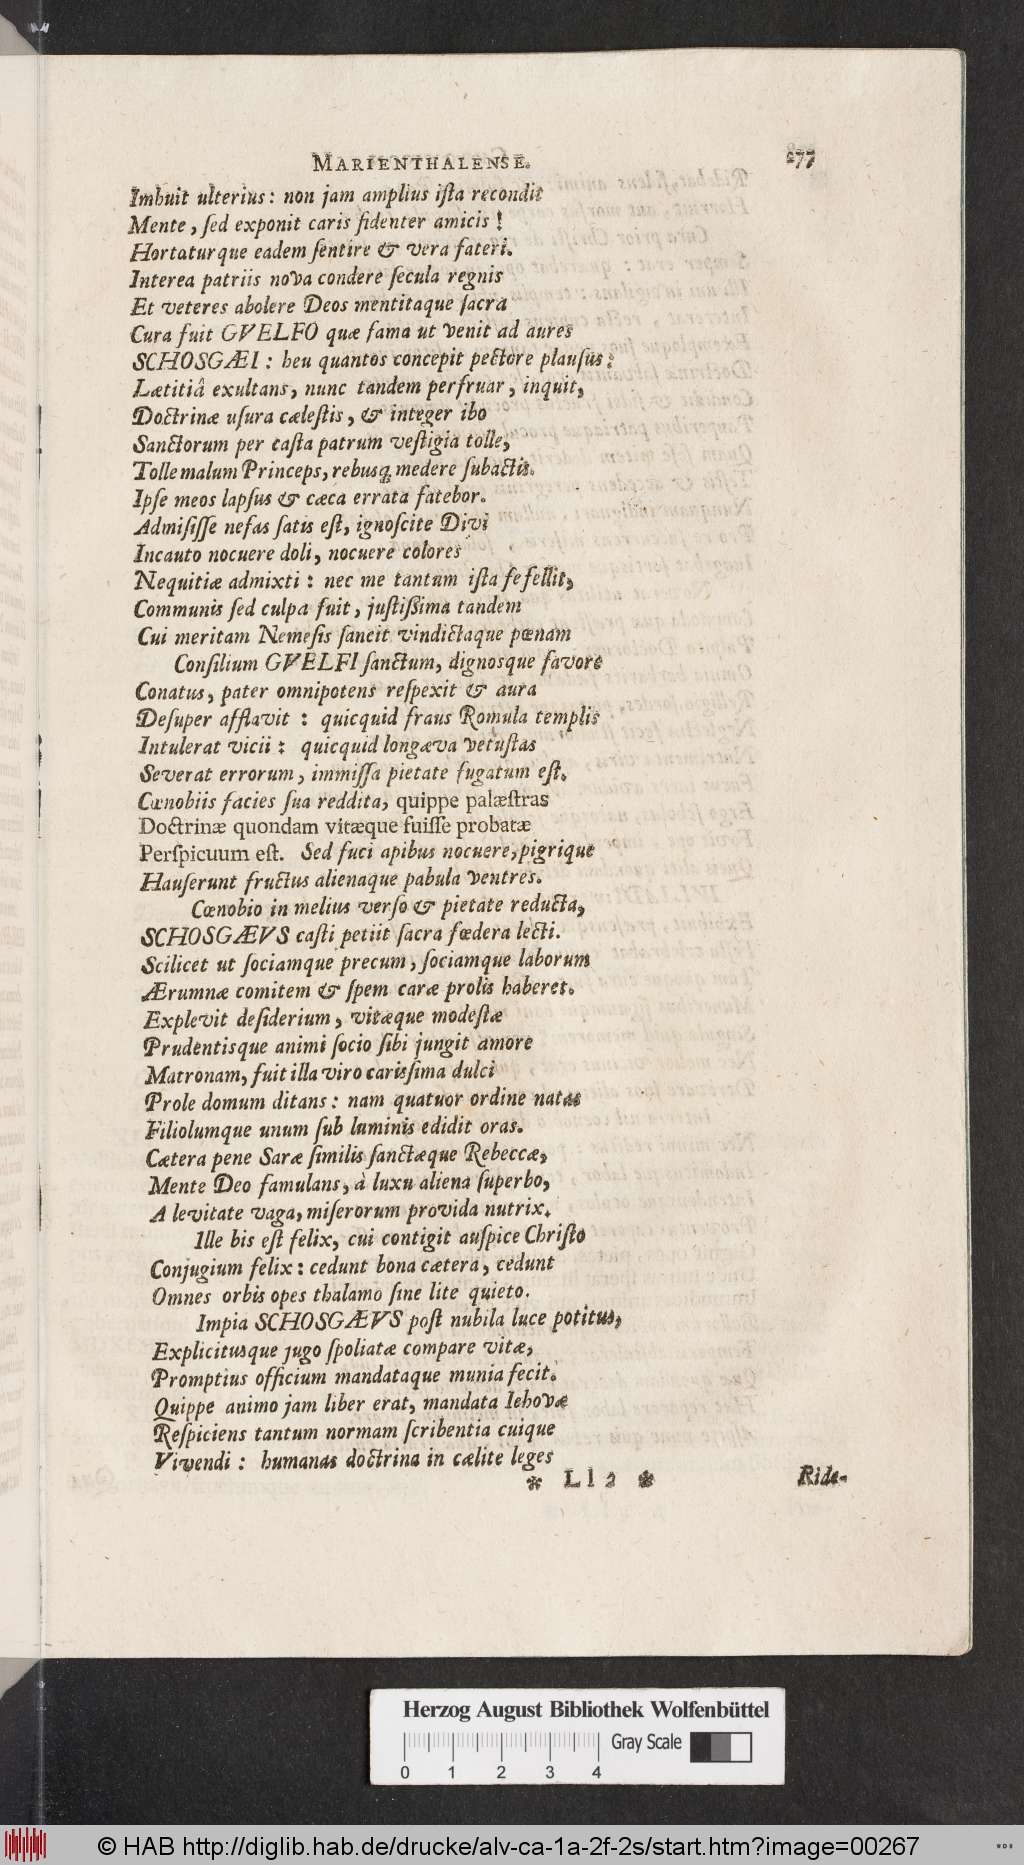 MARIENTHALENSE. 277
Imbuit ulterius: non jam amplius iſta recondit
Mente, ſed exponit caris fidenter amicis!
Hortaturque eadem ſentire & vera fateri.
Interea patriis nova condere ſecula regnis
Et veteres abolere Deos mentitaque ſacra
Cura fuit GVELFO quæ fama ut venit ad aures
SCHOSGÆI: heu quantos concepit pectore plauſus:
Lætitiâ exultans, nunc tandem perfruar, inquit,
Doctrinæ uſura cæleſtis, & integer ibo
Sanctorum per caſta patrum veſtigia tolle,
Tolle malum Princeps, rebusq; medere ſubactis.
Ipſe meos lapſus & cæca errata fatebor.
Admiſiſſe nefas ſatis eſt, ignoſcite Divi
Incauto nocuere doli, nocuere colores
Nequitiæ admixti: nec me tantum iſta fefellit,
Communis ſed culpa fuit, juſtißima tandem
Cui meritam Nemeſis ſancit vindictaque pœnam
Conſilium GVELFI ſanctum, dignosque favore
Conatus, pater omnipotens reſpexit & aura
Deſuper afflavit: quicquid fraus Romula templis
Intulerat vicii: quicquid longæva vetuſtas
Severat errorum, immiſſa pietate fugatum eſt.
Cœnobiis facies ſua reddita, quippe palæſtras
Doctrinæ quondam vitæque fuiſſe probatæ
Perſpicuum eſt. Sed fuci apibus nocuere, pigrique
Hauſerunt fructus alienaque pabula ventres.
Cœnobio in melius verſo & pietate reducta,
SCHOSGÆVS caſti petiit ſacra fœdera lecti.
Scilicet ut ſociamque precum, ſociamque laborum
Ærumnæ comitem & ſpem caræ prolis haberet.
Explevit deſiderium, vitæque modeſtæ
Prudentisque animi ſocio ſibi jungit amore
Matronam, fuit illa viro carisſima dulci
Prole domum ditans: nam quatuor ordine natas
Filiolumque unum ſub luminis edidit oras.
Cætera pene Saræ ſimilis ſanctæque Rebeccæ,
Mente Deo famulans, à luxu aliena ſuperbo,
A levitate vaga, miſerorum provida nutrix.
Ille bis eſt felix, cui contigit auſpice Chriſto
Conjugium felix: cedunt bona cætera, cedunt
Omnes orbis opes thalamo ſine lite quieto.
Impia SCHOSGÆVS poſt nubila luce potitus,
Explicitusque jugo ſpoliatæ compare vitæ,
Promptius officium mandataque munia fecit.
Quippe animo jam liber erat, mandata Iehovæ
Reſpiciens tantum normam ſcribentia cuique
Vivendi: humanas doctrina in cælite leges
* Ll 2 * Ride-
Herzog August Bibliothek Wolfenbüttel
Gray Scale
0 1 2 3 4
© HAB http://diglib.hab.de/drucke/alv-ca-1a-2f-2s/start.htm?image=00267